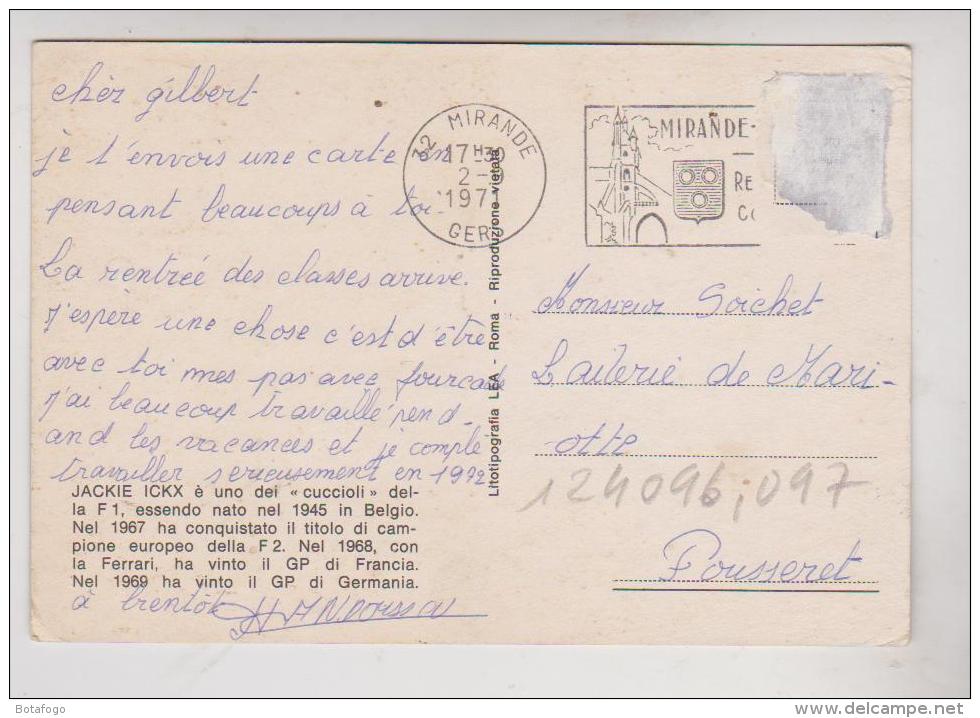 chèr gilbert
je t'envois une carte en
pensant beaucoups à toi.
La rentrée des classes arrive.
j'espère une chose c'est d'être
avec toi mes pas avec fourcade
j'ai beaucoup travaillé pend-
and les vacances et je compte
travailler serieusement en 1972
JACKIE ICKX è uno dei «cuccioli» del-
la F1, essendo nato nel 1945 in Belgio.
Nel 1967 ha conquistato il titolo di cam-
pione europeo della F2. Nel 1968, con
la Ferrari, ha vinto il GP di Francia.
Nel 1969 ha vinto il GP di Germania.
à bientôt
Litotipografia LEA - Roma - Riproduzione vietata
32 MIRANDE
17H30
2-9
1971
GERS
MIRANDE-
RE
CO
Monsieur Soichet
Laiterie de Mari-
otte
124096;097
Fousseret
Botafogo
www.delcampe.net